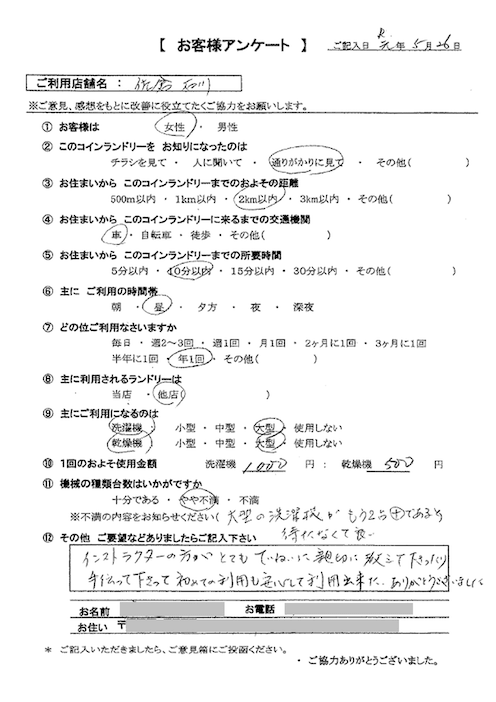 【 お客様アンケート 】 ご記入日 R元年5月26日
ご利用店舗名 : 石川
※ご意見、感想をもとに改善に役立てたくご協力をお願いします。
① お客様は 女性 ・ 男性
② このコインランドリーを お知りになったのは
チラシを見て ・ 人に聞いて ・ 通りがかりに見て ・ その他( )
③ お住まいから このコインランドリーまでのおよその距離
500m以内 ・ 1km以内 ・ 2km以内 ・ 3km以内 ・ その他( )
④ お住まいから このコインランドリーに来るまでの交通機関
車 ・ 自転車 ・ 徒歩 ・ その他( )
⑤ お住まいから このコインランドリーまでの所要時間
5分以内 ・ 10分以内 ・ 15分以内 ・ 30分以内 ・ その他( )
⑥ 主に ご利用の時間帯
朝 ・ 昼 ・ 夕方 ・ 夜 ・ 深夜
⑦ どの位ご利用なさいますか
毎日 ・ 週2~3回 ・ 週1回 ・ 月1回 ・ 2ヶ月に1回 ・ 3ヶ月に1回
半年に1回 ・ 年1回 ・ その他( )
⑧ 主に利用されるランドリーは
当店 ・ 他店( )
⑨ 主にご利用になるのは
洗濯機 : 小型 ・ 中型 ・ 大型 ・ 使用しない
乾燥機 : 小型 ・ 中型 ・ 大型 ・ 使用しない
⑩ 1回のおよそ使用金額 洗濯機 1000 円 : 乾燥機 500 円
⑪ 機械の種類台数はいかがですか
十分である ・ やや不満 ・ 不満
※不満の内容をお知らせください( 大型の洗濯機がもう2台 であると
待たなくて良い
⑫ その他 ご要望などありましたらご記入下さい
インストラクターの方がとてもていねいに親切に教えて下さったり
手伝って下さって初めての利用も安心して利用出来た。ありがとうございました
お名前 お電話
お住い 〒
* ご記入いただきましたら、ご意見箱にご投函ください。
・ ご協力ありがとうございました。